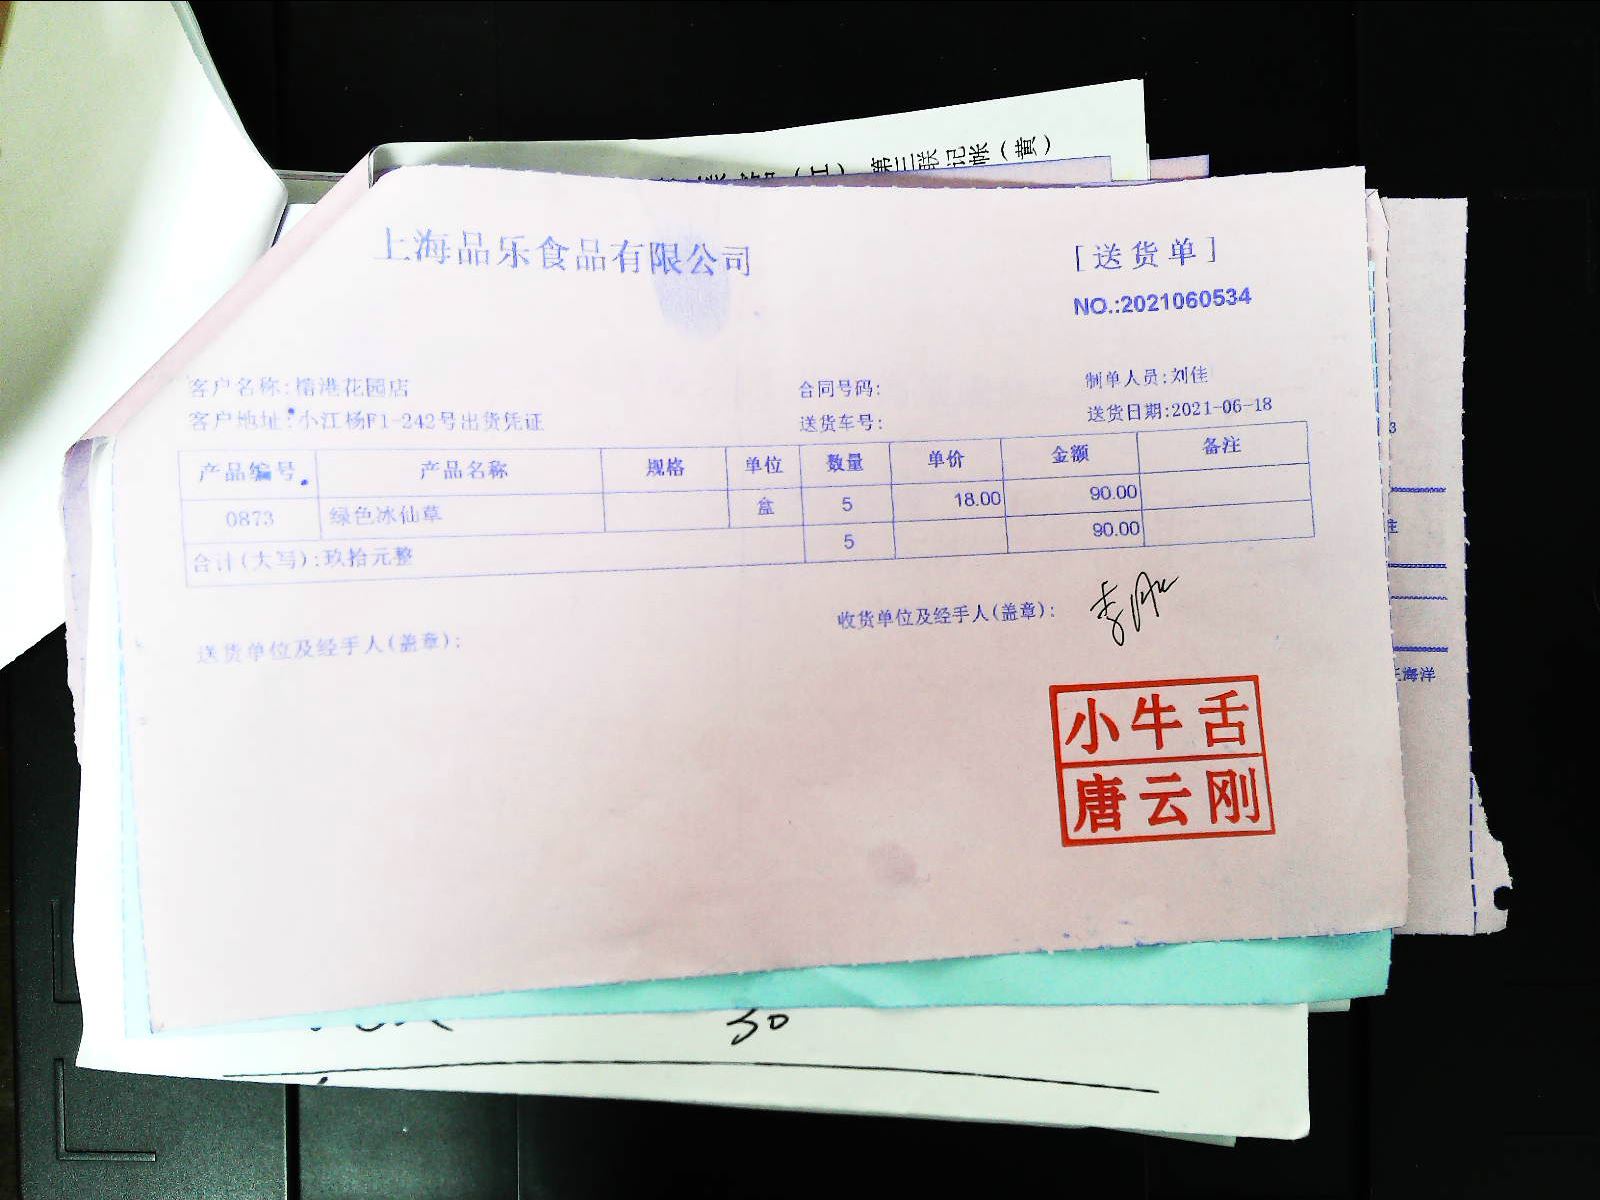 第三联记帐（黄）
上海品乐食品有限公司
[送货单]
NO.:2021060534
客户名称:榕港花园店
合同号码:
制单人员:刘佳
客户地址:小江杨F1-242号出货凭证
送货车号:
送货日期:2021-06-18
产品编号 产品名称 规格 单位 数量 单价 金额 备注
0873 绿色冰仙草 盒 5 18.00 90.00
合计(大写):玖拾元整 5 90.00
收货单位及经手人(盖章):
送货单位及经手人(盖章):
小牛舌
唐云刚
海洋
30